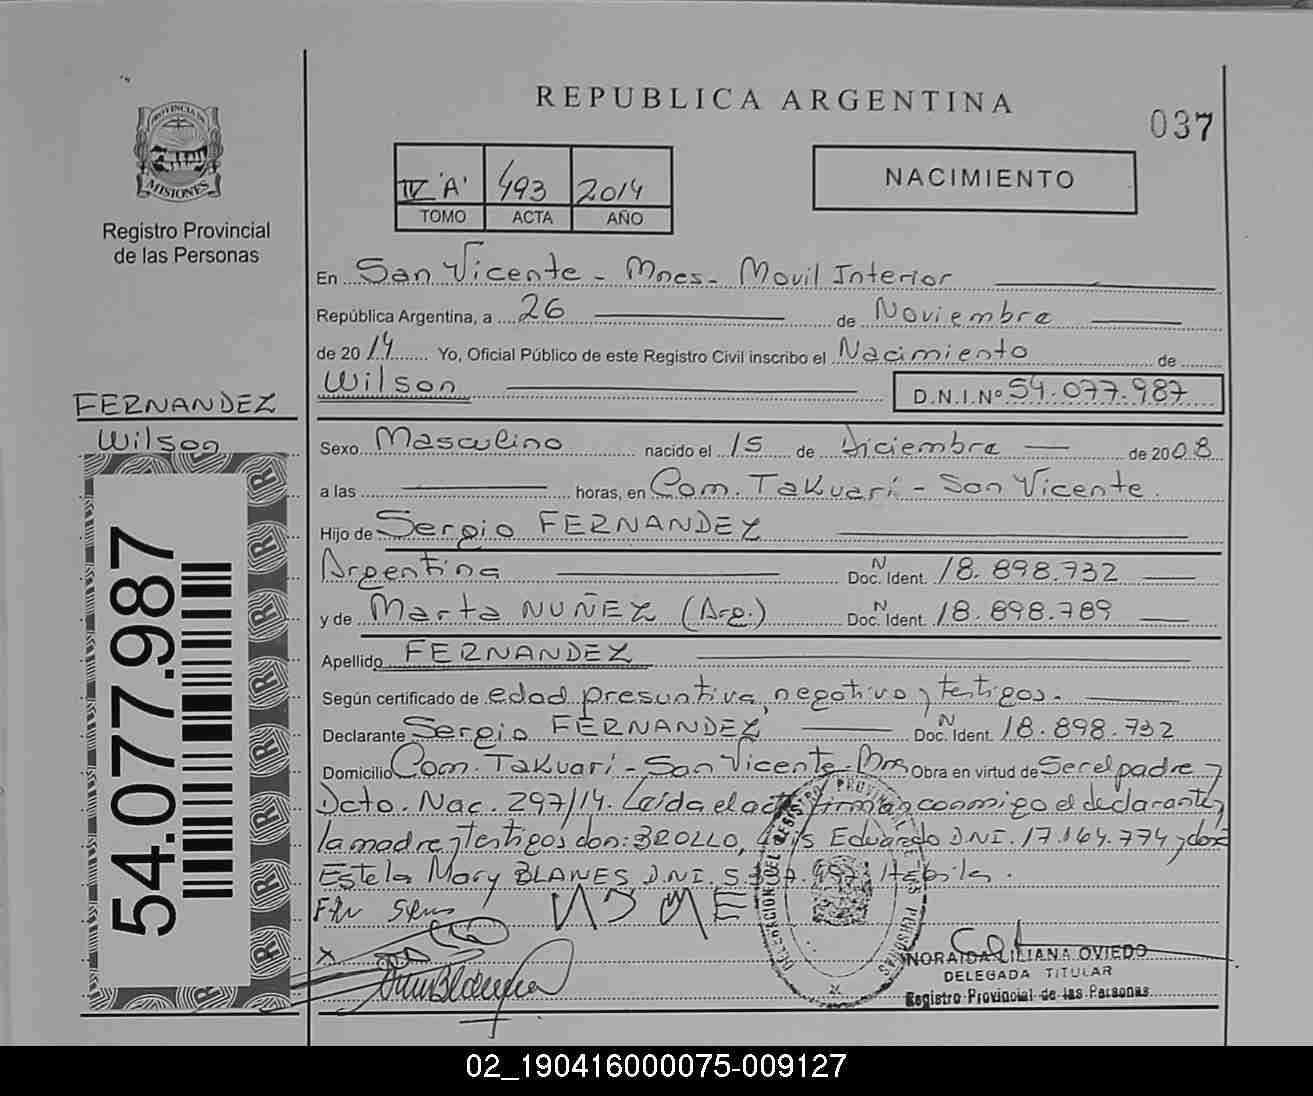 REPUBLICA ARGENTINA
037
PROVINCIA DE
MISIONES
Registro Provincial
de las Personas
IV "A" 493 2014
TOMO ACTA AÑO
NACIMIENTO
En San Vicente - Mnes - Movil Interior
República Argentina, a 26 de Noviembre
de 2014 Yo, Oficial Público de este Registro Civil inscribo el Nacimiento de
Wilson D.N.I.Nº 54.077.987
FERNANDEZ
Wilson
54.077.987
Sexo Masculino nacido el 15 de Diciembre de 2008
a las horas, en Com. Takuarí - San Vicente.
Hijo de Sergio FERNANDEZ
Argentina Doc. N Ident. 18.898.732
y de Marta NUÑEZ (Arg.) Doc. N Ident. 18.898.789
Apellido FERNANDEZ
Según certificado de edad presuntiva, negativo y testigos.
Declarante Sergio FERNANDEZ Doc. N Ident. 18.898.732
Domicilio Com. Takuarí - San Vicente - Mns Obra en virtud de Ser el padre y
Dcto. Nac. 297/14. Leída el acta firman conmigo el declarante,
la madre y testigos don: BROLLO, Luis Eduardo D.N.I. 17.164.774 y doña
Estela Mary BLANES D.N.I. Hábiles.
NORAIDA LILIANA OVIEDO
DELEGADA TITULAR
Registro Provincial de las Personas
02_190416000075-009127